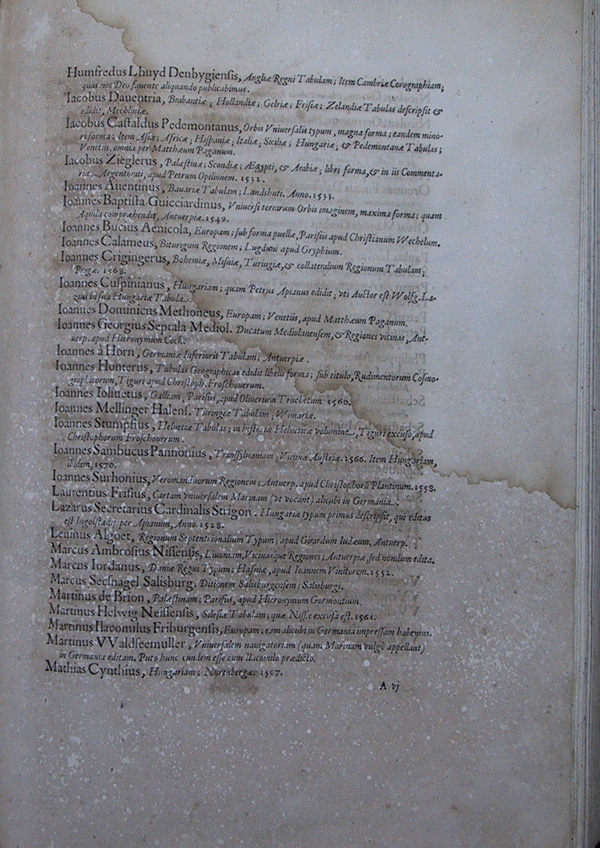 Humfredus Lhuyd Denbygiensis, Angliæ Regni Tabulam; Item Cambriæ Corographiam;
quas nos Deo fauente aliquando publicabimus.
Iacobus Dauentria, Brabantiæ, Hollandiæ; Gelriæ; Frisiæ; Zelandiæ Tabulas descripsit &
edidit, Mechliniæ.
Iacobus Castaldus Pedemontanus, Orbis Vniuersalis typum, magna forma; eandem mino-
ri forma; Item Asiæ; Africæ, Hispaniæ, Italiæ; Siciliæ; Hungariæ, & Pedemontanæ Tabulas;
Venetiis, omnia per Matthæum Paganum.
Iacobus Zieglerus, Palæstinæ; Scondiæ; Ægypti, & Arabiæ, libri forma, & in iis Commenta-
ria. Argentorati, apud Petrum Opilionem. 1532.
Ioannes Auentinus, Bauariæ Tabulam; Landshuti. Anno. 1533.
Ioannes Baptista Guicciardinus, Vniuersi terrarum Orbis imaginem, maxima forma; quam
Aquila compræhendit, Antuerpiæ. 1549.
Ioannes Bucius Aenicola, Europam; sub forma puellæ, Parisiis apud Christianum Wechelum.
Ioannes Calameus, Biturigum Regionem; Lugduni apud Gryphium.
Ioannes Crigingerus, Bohemiæ, Misniæ, Turingiæ, & collateralium Regionum Tabulam;
Pragæ. 1568.
Ioannes Cuspinianus, Hungariam; quam Petrus Apianus edidit, vti Auctor est Wolfg. La-
zius in sua Hungariæ Tabula.
Ioannes Dominicus Methoneus, Europam; Venetiis, apud Matthæum Paganum.
Ioannes Georgius Septala Mediol. Ducatum Mediolanensem, & Regiones vicinas, Ant-
uerp. apud Hieronymum Cock.
Ioannes à Horn, Germaniæ Inferioris Tabulam; Antuerpiæ.
Ioannes Honterus, Tabulas Geographicas edidit libelli forma; sub titulo, Rudimentorum Cosmo-
graphicorum, Tiguri apud Christoph. Froschouerum.
Ioannes Iolinetus, Galliam, Parisiis, apud Oliuerium Truchetum. 1560.
Ioannes Mellinger Halens. Turingæ Tabulam; Wimariæ.
Ioannes Stumpfius, Heluetiæ Tabulas; in historiæ Helueticæ volumine, Tiguri excuso, apud
Christophorum Froschouerum.
Ioannes Sambucus Pannonius, Transsyluaniam; Viennæ Austriæ. 1566. Item Hungariam,
ibidem, 1570.
Ioannes Surhonius, Veromanduorum Regionem; Antuerp. apud Christophorū Plantinum. 1558.
Laurentius Frisius, Cartam Vniuersalem Marinam (vt vocant) alicubi in Germania.
Lazarus Secretarius Cardinalis Strigon. Hungariæ typum primus descripsit, qui editus
est Ingolstadij per Apianum, Anno. 1528.
Leuinus Algoet, Regionum Septentrionalium Typum; apud Girardum Iudæum, Antuerp.
Marcus Ambrosius Nissensis, Liuoniam, Vicinasque Regiones; Antuerpiæ, sed nondum edita.
Marcus Iordanus, Daniæ Regni Typum; Hafniæ, apud Ioannem Vinitorem. 1552.
Marcus Secsnagel Salisburg. Ditionem Salisburgensem; Salisburgi.
Martinus de Brion, Palæstinam; Parisiis, apud Hieronymum Gormontium.
Martinus Helwig Neissensis, Silesiæ Tabulam; quæ Nissæ excusa est. 1561.
Martinus Ilacomilus Friburgensis, Europam; eam alicubi in Germania impressam habemus.
Martinus VValdseemuller, Vniuersalem nauigatoriam (quam Marinam vulgò appellant)
in Germania editam. Puto hunc eundem esse cum Ilacomilo prædicto.
Mathias Cynthius, Hungariam; Nurenbergæ. 1567.
A vj